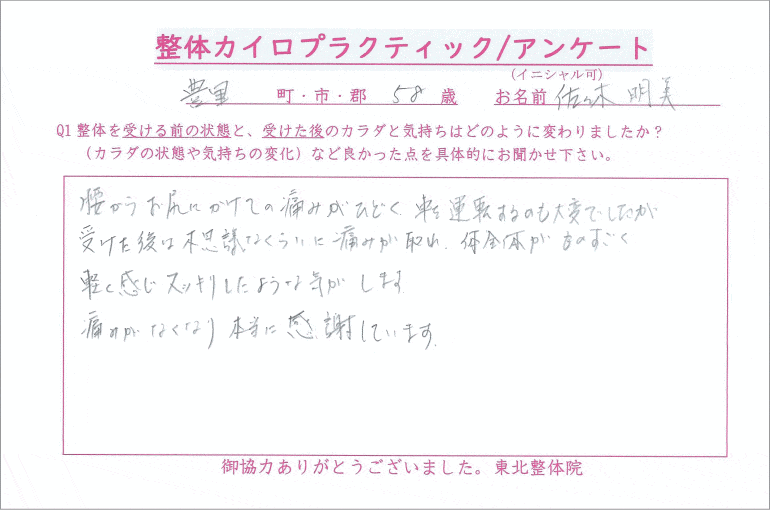 整体カイロプラクティック/アンケート
(イニシャル可)
豊里 町・市・郡 58 歳 お名前 佐々木 明美
Q1 整体を受ける前の状態と、受けた後のカラダと気持ちはどのように変わりましたか?
(カラダの状態や気持ちの変化)など良かった点を具体的にお聞かせ下さい。
腰からお尻にかけての痛みがひどく、車を運転するのも大変でしたが
受けた後は不思議なくらいに痛みが取れ、体全体がものすごく
軽く感じスッキリしたような気がします
痛みがなくなり本当に感謝しています。
御協力ありがとうございました。東北整体院